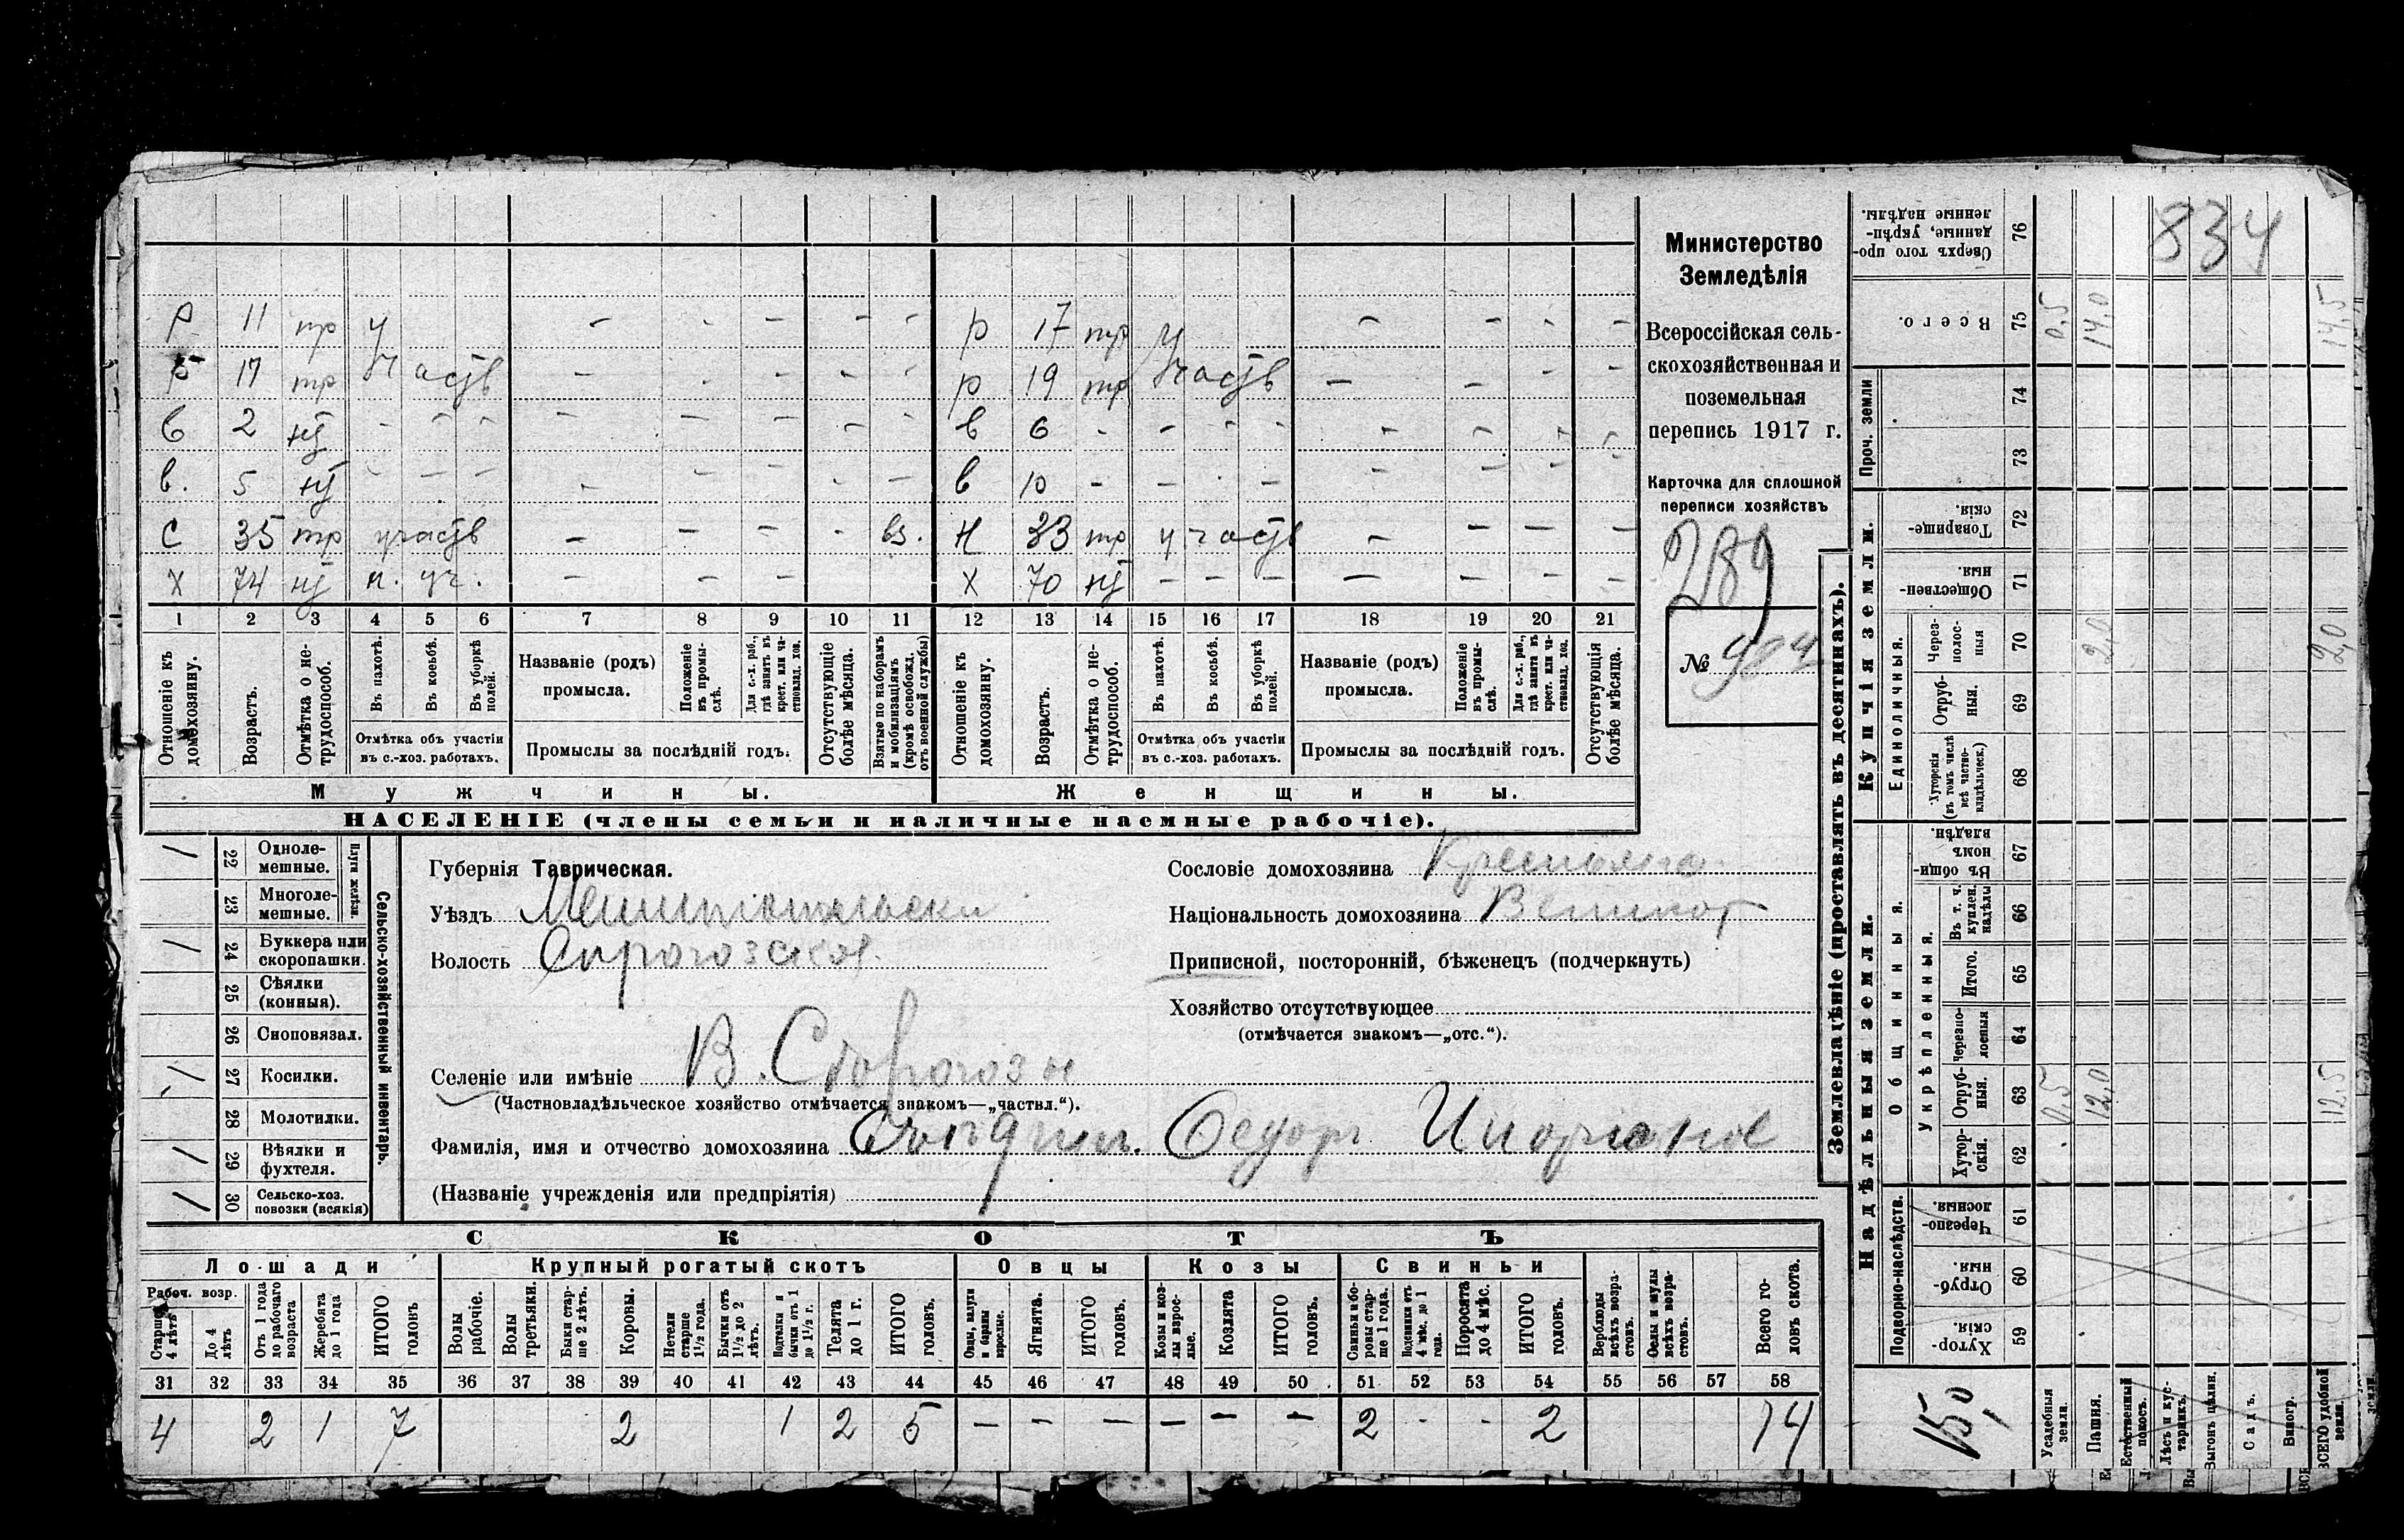 Министерство
Земледѣлія
Всероссійская сель-
скохозяйственная и
поземельная
перепись 1917 г.
Карточка для сплошной
переписи хозяйствъ
289
№ 904
834
Р 11 тр у — - — — - р 17 тр у — - - -
Р 17 тр Участв — - - - - р 19 тр Участв — — - -
в 2 нт - - - - - - - - в 6 - - - - - - - -
в. 5 нт - - - - - - - - в 10 - - - - - - - -
С 35 тр участв — — - - вз. Н 33 тр участв — — — —
Х 74 нт н. уч. — — — Х 70 нт — — — — — — —
1 2 3 4 5 6 7 8 9 10 11 12 13 14 15 16 17 18 19 20 21
Отношеніе къ домохозяину.
Возрастъ.
Отмѣтка о не-трудоспособ.
Въ пахотѣ.
Въ косьбѣ.
Въ уборкѣ полей.
Отмѣтка объ участіи
въ с.-хоз. работахъ.
Названіе (родъ)
промысла.
Положеніе въ промы-слѣ.
Для с.-х. раб., гдѣ занятъ въ крест. или ча-стновлад. хоз.
Промыслы за послѣдній годъ.
Отсутствующіе болѣе мѣсяца.
Взятые по наборамъ и мобилизаціямъ (кромѣ освобожд. отъ военной службы)
Отношеніе къ домохозяину.
Возрастъ.
Отмѣтка о не-трудоспособ.
Въ пахотѣ.
Въ косьбѣ.
Въ уборкѣ полей.
Отмѣтка объ участіи
въ с.-хоз. работахъ.
Названіе (родъ)
промысла.
Положеніе въ промы-слѣ.
Для с.-х. раб., гдѣ занята въ крест. или ча-стновлад. хоз.
Промыслы за послѣдній годъ.
Отсутствующія болѣе мѣсяца.
Мужчины. Женщины.
НАСЕЛЕНІЕ (члены семьи и наличные наемные рабочіе).
Сельско-хозяйственный инвентарь.
Плуги желѣзн.
/ 22 Одноле-мешные.
23 Многоле-мешные.
/ 24 Буккера или скоропашки.
25 Сѣялки (конныя).
26 Сноповязал.
/ 27 Косилки.
28 Молотилки.
/ 29 Вѣялки и фухтеля.
/ 30 Сельско-хоз. повозки (всякія)
Губернія Таврическая.
Уѣздъ
Волость
Селеніе или имѣніе
(Частновладѣльческое хозяйство отмѣчается знакомъ—„частвл.“).
Фамилія, имя и отчество домохозяина
(Названіе учрежденія или предпріятія)
Сословіе домохозяина
Національность домохозяина
Приписной, посторонній, бѣженецъ (подчеркнуть)
Хозяйство отсутствующее
(отмѣчается знакомъ—„отс.“).
СКОТЪ
Лошади Крупный рогатый скотъ Овцы Козы Свиньи
Рабоч. возр.
Старше 4 лѣтъ
До 4 лѣтъ
Отъ 1 года до рабочаго возраста
Жеребята до 1 года
ИТОГО головъ
Волы рабочіе.
Волы третьяки.
Быки стар-ше 2 лѣтъ.
Коровы.
Нетели старше 1½ года.
Бычки отъ 1½ до 2 лѣтъ.
Подтелки и бычки отъ 1 до 1½ г.
Телята до 1 г.
ИТОГО головъ.
Овцы, валухи и бараны взрослые.
Ягнята.
ИТОГО головъ.
Козы и коз-лы взрос-лые.
Козлята
ИТОГО головъ.
Свиньи и бо-ровы стар-ше 1 года.
Подсвинки отъ 4 мѣс. до 1 года.
Поросята до 4 мѣс.
ИТОГО головъ.
Верблюды всѣхъ возра-стовъ.
Ослы и мулы всѣхъ возра-стовъ.
Всего го-ловъ скота.
31 32 33 34 35 36 37 38 39 40 41 42 43 44 45 46 47 48 49 50 51 52 53 54 55 56 57 58
4 2 1 7 2 1 2 5 — - — — — — 2 - - 2 14
Землевладѣніе (проставлять въ десятинахъ).
Сверхъ того про-данные, укрѣп-ленные надѣлы. 76
Всего. 75 0,5 14,0 14,5
Проч. земли
74
73
Купчія земли.
Товарище-скія. 72
Обществен-ныя. 71
Единоличныя.
Через-полос-ныя 70 2,0 2,0
Отруб-ныя. 69
Хуторскія (въ томъ числѣ всѣ частно-владѣльческ.) 68
Надѣльныя земли.
Общинныя.
Въ общи-номъ владѣн. 67
Укрѣпленныя.
Въ т. ч. куплен. надѣлы 66
Итого. 65
Черезпо-лосныя 64
Отруб-ныя. 63 0,5 12,0 12,5
Хутор-скія. 62
Подворно-наслѣдств.
Черезпо-лосныя. 61
Отруб-ныя. 60
Хутор-скія. 59
150
Усадебныя земли.
Пашня.
Естественный покосъ.
Лѣсъ и кус-тарникъ.
Выгонъ цѣлин.
Садъ.
Виногр.
ВСЕГО удобной земли.